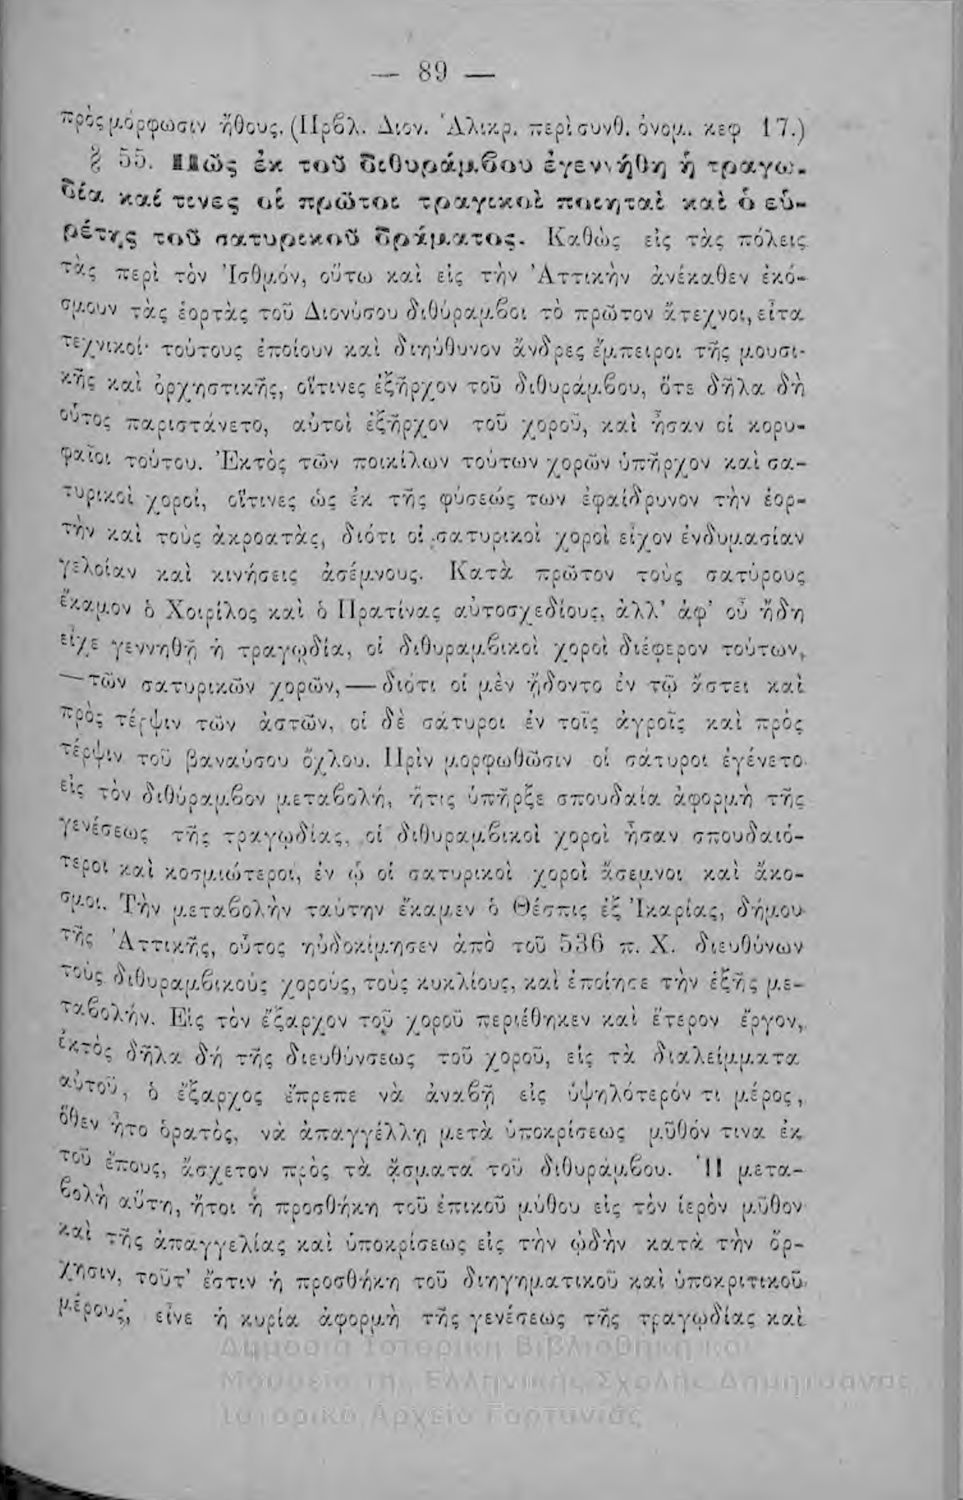 — 89 —
πρὸς μόρφωσιν ἤθους. (Πρβλ. Διον. Ἁλικρ. περὶ συνθ. ὀνομ. κεφ 17.)
§ 55. Πῶς ἐκ τοῦ διθυράμβου ἐγεννήθη ἡ τραγῳ-
δία καί τινες οἱ πρῶτοι τραγικοὶ ποιηταὶ καὶ ὁ εὑ-
ρέτης τοῦ σατυρικοῦ δράματος. Καθὼς εἰς τὰς πόλεις
τὰς περὶ τὸν Ἰσθμόν, οὕτω καὶ εἰς τὴν Ἀττικὴν ἀνέκαθεν ἐκό-
σμουν τὰς ἑορτὰς τοῦ Διονύσου διθύραμβοι τὸ πρῶτον ἄτεχνοι, εἶτα
τεχνικοί· τούτους ἐποίουν καὶ διηύθυνον ἄνδρες ἔμπειροι τῆς μουσι-
κῆς καὶ ὀρχηστικῆς, οἵτινες ἐξῆρχον τοῦ διθυράμβου, ὅτε δῆλα δὴ
οὗτος παριστάνετο, αὐτοὶ ἐξῆρχον τοῦ χοροῦ, καὶ ἦσαν οἱ κορυ-
φαῖοι τούτου. Ἐκτὸς τῶν ποικίλων τούτων χορῶν ὑπῆρχον καὶ σα-
τυρικοὶ χοροί, οἵτινες ὡς ἐκ τῆς φύσεώς των ἐφαίδρυνον τὴν ἑορ-
τὴν καὶ τοὺς ἀκροατάς, διότι οἱ σατυρικοὶ χοροὶ εἶχον ἐνδυμασίαν
γελοίαν καὶ κινήσεις ἀσέμνους. Κατὰ πρῶτον τοὺς σατύρους
ἔκαμον ὁ Χοιρίλος καὶ ὁ Πρατίνας αὐτοσχεδίους, ἀλλ’ ἀφ’ οὗ ἤδη
εἶχε γεννηθῆ ἡ τραγῳδία, οἱ διθυραμβικοὶ χοροὶ διέφερον τούτων,
—τῶν σατυρικῶν χορῶν,— διότι οἱ μὲν ᾔδοντο ἐν τῷ ἄστει καὶ
πρὸς τέρψιν τῶν ἀστῶν, οἱ δὲ σάτυροι ἐν τοῖς ἀγροῖς καὶ πρὸς
τέρψιν τοῦ βαναύσου ὄχλου. Πρὶν μορφωθῶσιν οἱ σάτυροι ἐγένετο
εἰς τὸν διθύραμβον μεταβολή, ἥτις ὑπῆρξε σπουδαία ἀφορμὴ τῆς
γενέσεως τῆς τραγῳδίας, οἱ διθυραμβικοὶ χοροὶ ἦσαν σπουδαιό-
τεροι καὶ κοσμιώτεροι, ἐν ᾧ οἱ σατυρικοὶ χοροὶ ἄσεμνοι καὶ ἄκο-
σμοι. Τὴν μεταβολὴν ταύτην ἔκαμεν ὁ Θέσπις ἐξ Ἰκαρίας, δήμου
τῆς Ἀττικῆς, οὗτος ηὐδοκίμησεν ἀπὸ τοῦ 536 π. Χ. διευθύνων
τοὺς διθυραμβικοὺς χορούς, τοὺς κυκλίους, καὶ ἐποίησε τὴν ἑξῆς με-
ταβολήν. Εἰς τὸν ἔξαρχον τοῦ χοροῦ περιέθηκεν καὶ ἕτερον ἔργον,
ἐκτὸς δῆλα δὴ τῆς διευθύνσεως τοῦ χοροῦ, εἰς τὰ διαλείμματα
αὐτοῦ, ὁ ἔξαρχος ἔπρεπε νὰ ἀναβῇ εἰς ὑψηλότερόν τι μέρος,
ὅθεν ἦτο ὁρατός, νὰ ἀπαγγέλλῃ μετὰ ὑποκρίσεως μῦθόν τινα ἐκ
τοῦ ἔπους, ἄσχετον πρὸς τὰ ᾄσματα τοῦ διθυράμβου. Ἡ μετα-
βολὴ αὕτη, ἤτοι ἡ προσθήκη τοῦ ἐπικοῦ μύθου εἰς τὸν ἱερὸν μῦθον
καὶ τῆς ἀπαγγελίας καὶ ὑποκρίσεως εἰς τὴν ᾠδὴν κατὰ τὴν ὄρ-
χησιν, τοῦτ’ ἔστιν ἡ προσθήκη τοῦ διηγηματικοῦ καὶ ὑποκριτικοῦ
μέρους, εἶνε ἡ κυρία ἀφορμὴ τῆς γενέσεως τῆς τραγῳδίας καὶ
Δημόσια Ιστορική Βιβλιοθήκη και
Μουσείο της Ελληνικής Σχολής Δημητσάνας
Ιστορικό Αρχείο Γορτυνίας